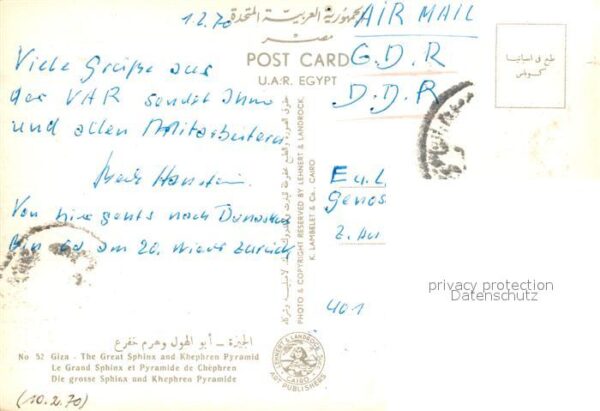 1.2.70
الجمهورية العربية المتحدة
مصر
POST CARD
U.A.R. EGYPT
AIR MAIL
G.D.R
D.D.R
طبع في اسبانيا
Viele Grüße aus
der VAR sendet Ihnen
und allen Mitarbeitern
Von hier gehts nach Damaskus
Bin ich am 20. wieder zurück
PHOTO & COPYRIGHT RESERVED BY LEHNERT & LANDROCK,
K. LAMBELET & Co., CAIRO
Genos
z. Hd
401
privacy protection
Datenschutz
الجيزة – أبو الهول وهرم خفرع
No 52 Giza - The Great Sphinx and Khephren Pyramid
Le Grand Sphinx et Pyramide de Chéphren
Die grosse Sphinx und Khephren Pyramide
LEHNERT & LANDROCK
CAIRO
ART PUBLISHERS
(10.2.70)